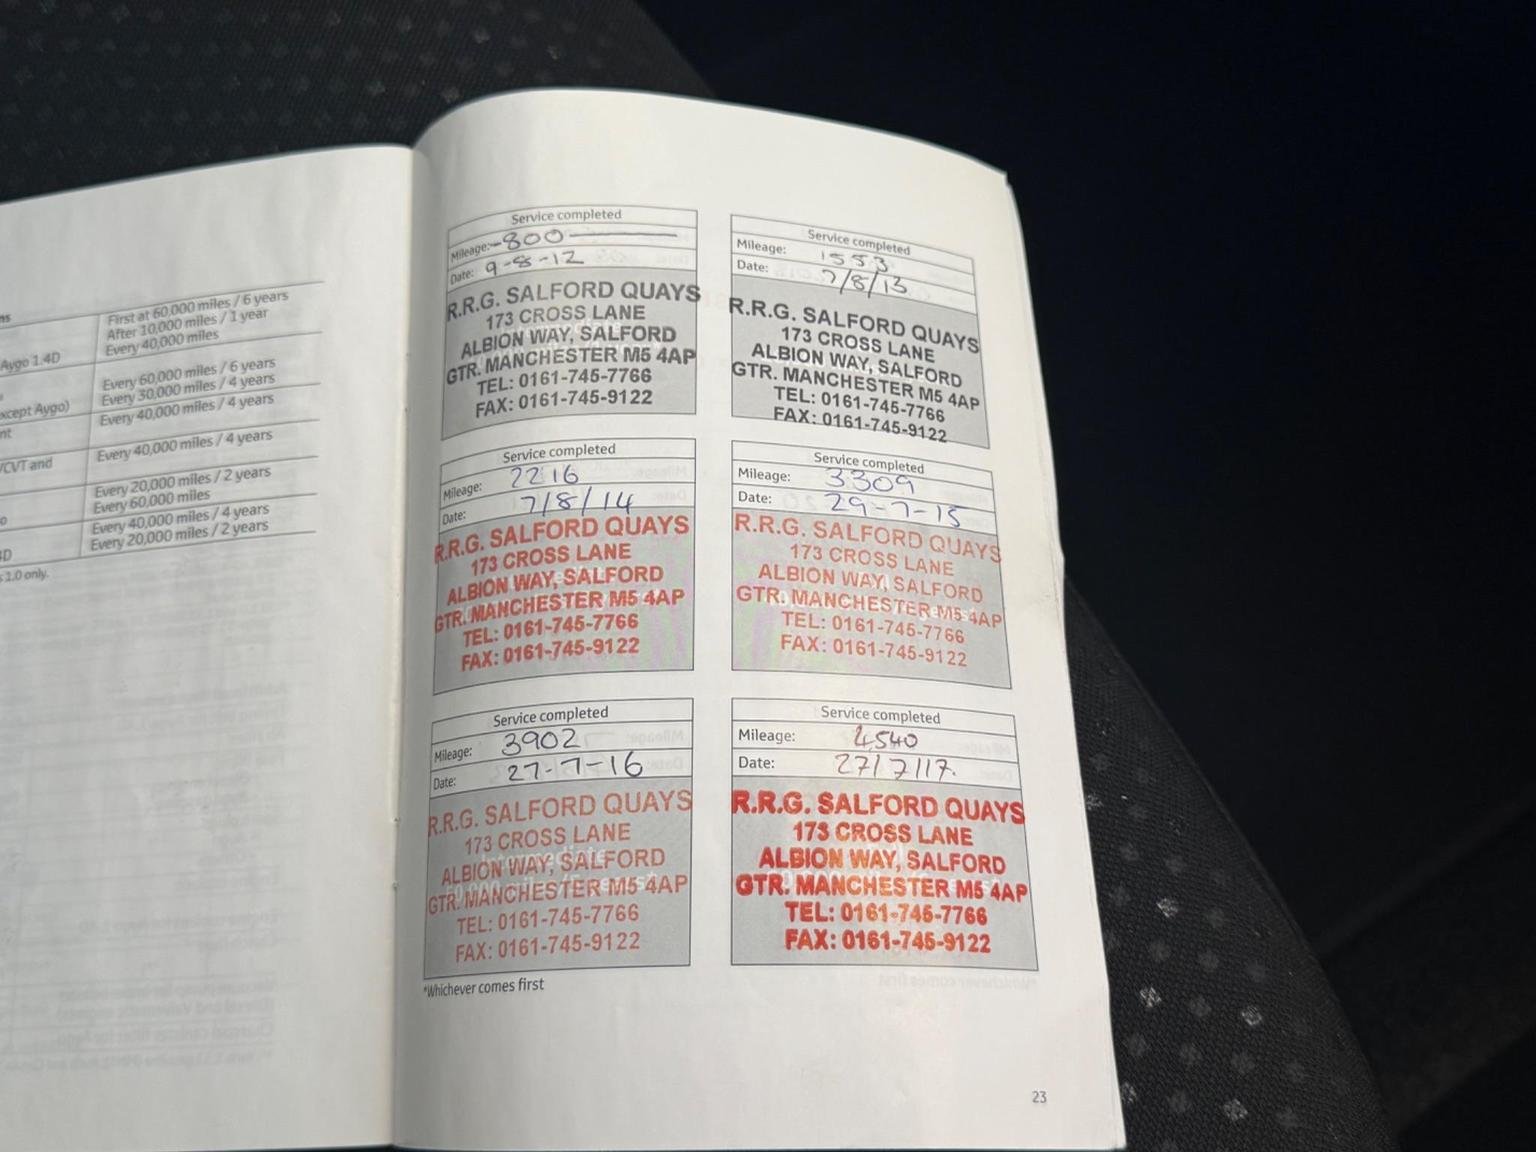 ns
First at 60,000 miles / 6 years
After 10,000 miles / 1 year
Aygo 1.4D
Every 40,000 miles
Every 60,000 miles / 6 years
except Aygo)
Every 30,000 miles / 4 years
nt
Every 40,000 miles / 4 years
/CVT and
Every 40,000 miles / 4 years
Every 20,000 miles / 2 years
o
Every 60,000 miles
Every 40,000 miles / 4 years
4D
Every 20,000 miles / 2 years
s 1.0 only.
Service completed
Mileage: -800
Date: 9-8-12
R.R.G. SALFORD QUAYS
173 CROSS LANE
ALBION WAY, SALFORD
GTR. MANCHESTER M5 4AP
TEL: 0161-745-7766
FAX: 0161-745-9122
Service completed
Mileage: 1553
Date: 7/8/13
R.R.G. SALFORD QUAYS
173 CROSS LANE
ALBION WAY, SALFORD
GTR. MANCHESTER M5 4AP
TEL: 0161-745-7766
FAX: 0161-745-9122
Service completed
Mileage: 2216
Date: 7/8/14
R.R.G. SALFORD QUAYS
173 CROSS LANE
ALBION WAY, SALFORD
GTR. MANCHESTER M5 4AP
TEL: 0161-745-7766
FAX: 0161-745-9122
Service completed
Mileage: 3309
Date: 29-7-15
R.R.G. SALFORD QUAYS
173 CROSS LANE
ALBION WAY, SALFORD
GTR. MANCHESTER M5 4AP
TEL: 0161-745-7766
FAX: 0161-745-9122
Service completed
Mileage: 3902
Date: 27-7-16
R.R.G. SALFORD QUAYS
173 CROSS LANE
ALBION WAY, SALFORD
GTR. MANCHESTER M5 4AP
TEL: 0161-745-7766
FAX: 0161-745-9122
Service completed
Mileage: 4540
Date: 27/7/17.
R.R.G. SALFORD QUAYS
173 CROSS LANE
ALBION WAY, SALFORD
GTR. MANCHESTER M5 4AP
TEL: 0161-745-7766
FAX: 0161-745-9122
*Whichever comes first
23